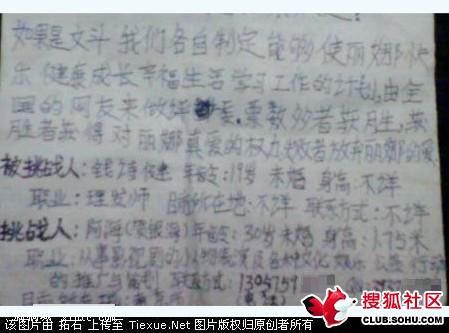 如果是文斗 我们各自制定能够使丽娜快
乐 健康成长幸福生活学习工作的计划,由全
国的网友来做评委.票数多者获胜,获
胜者获得对丽娜真爱的权力,败者放弃丽娜的爱
被挑战人:钱诗健 年龄:19岁 未婚 身高:不详
职业:理发师 目前所在地:不详 联系方式:不详
挑战人:阿海 年龄:30岁 未婚 身高:1.75米
职业:从事影视圈的 及各种文化
的推广与策划 联系方式:1305759
搜狐社区
CLUB.SOHU.COM
该图片由 拓石 上传至 Tiexue.Net 图片版权归原创者所有